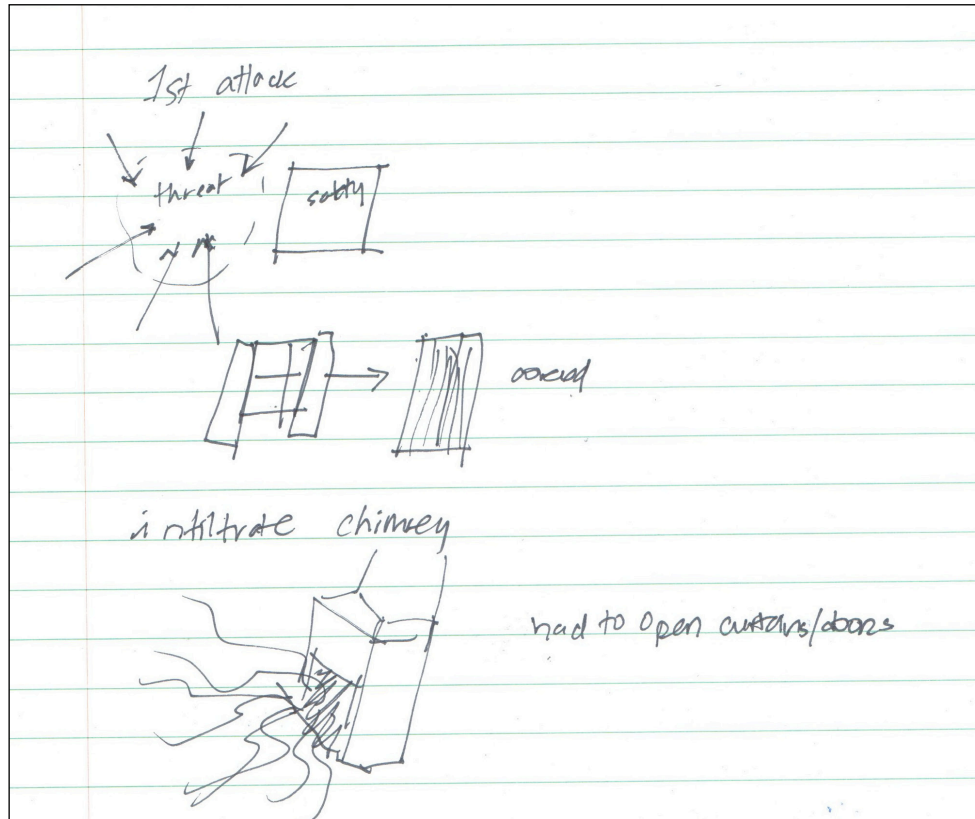 1st attack
threat
safety
covered
infiltrate chimney
had to open curtains/doors